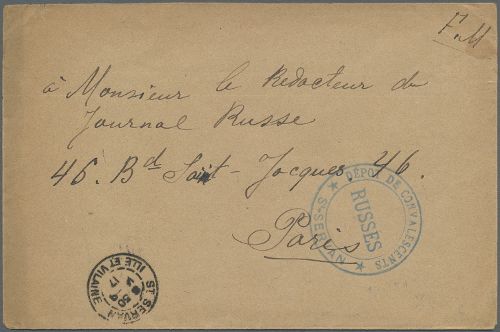 F.M
à Monsieur le Redacteur du
Journal Russe
46. Bd Saint-Jacques, 46.
Paris
DÉPOT DE CONVALESCENTS
RUSSES
ST-SERVAN
ST SERVAN
ILLE ET VILAINE
17